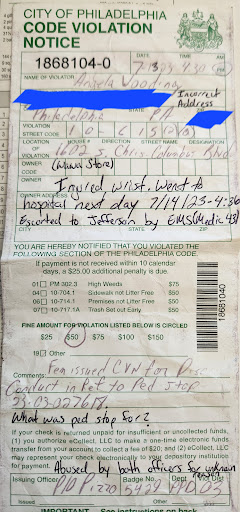 CITY OF PHILADELPHIA
CODE VIOLATION
NOTICE
1868104-0
DATE TIME
7-13-23 4:30 PM
NAME OF VIOLATOR
Angela
Incorrect
Address
Philadelphia PA
VIOLATION
STREET CODE
LOCATION OF HOUSE # DIRECTION STREET NAME DESIGNATION
VIOLATION
S Chris Columbus Blvd
OWNER
CODE
(Wawa Store)
OWNER
Injured wrist. Went to
OWNER ADDRESS
hospital next day 7/14/23-4:36
Escorted to Jefferson by EMS (Medic 43)
CITY STATE ZIP
YOU ARE HEREBY NOTIFIED THAT YOU VIOLATED THE
FOLLOWING SECTION OF THE PHILADELPHIA CODE.
If payment is not received within 10 calendar
days, a $25.00 additional penalty is due.
01 PM 302.3 High Weeds $75
04 10-704.1 Sidewalk not Litter Free $50
06 10-714.1 Premises not Litter Free $50
07 10-717.1A Trash Set out Early $50
FINE AMOUNT FOR VIOLATION LISTED BELOW IS CIRCLED
$25 $50 $75 $100 $150
19 Other
Comments Fem issued CVN for Disc
Conduct in Ref to Ped Stop
23-03-027617
What was ped stop for?
If your check is returned unpaid for insufficient or uncollected funds,
(1) you authorize eCollect, LLC to make a one-time electronic funds
transfer from your account to collect a fee of $20; and (2) eCollect, LLC
may represent your check electronically to your depository institution
for payment.
Abused by both officers for unknown
reason
Issuing Officer Badge Dept Unit Dist
Issued Other
18681040
IMPORTANT